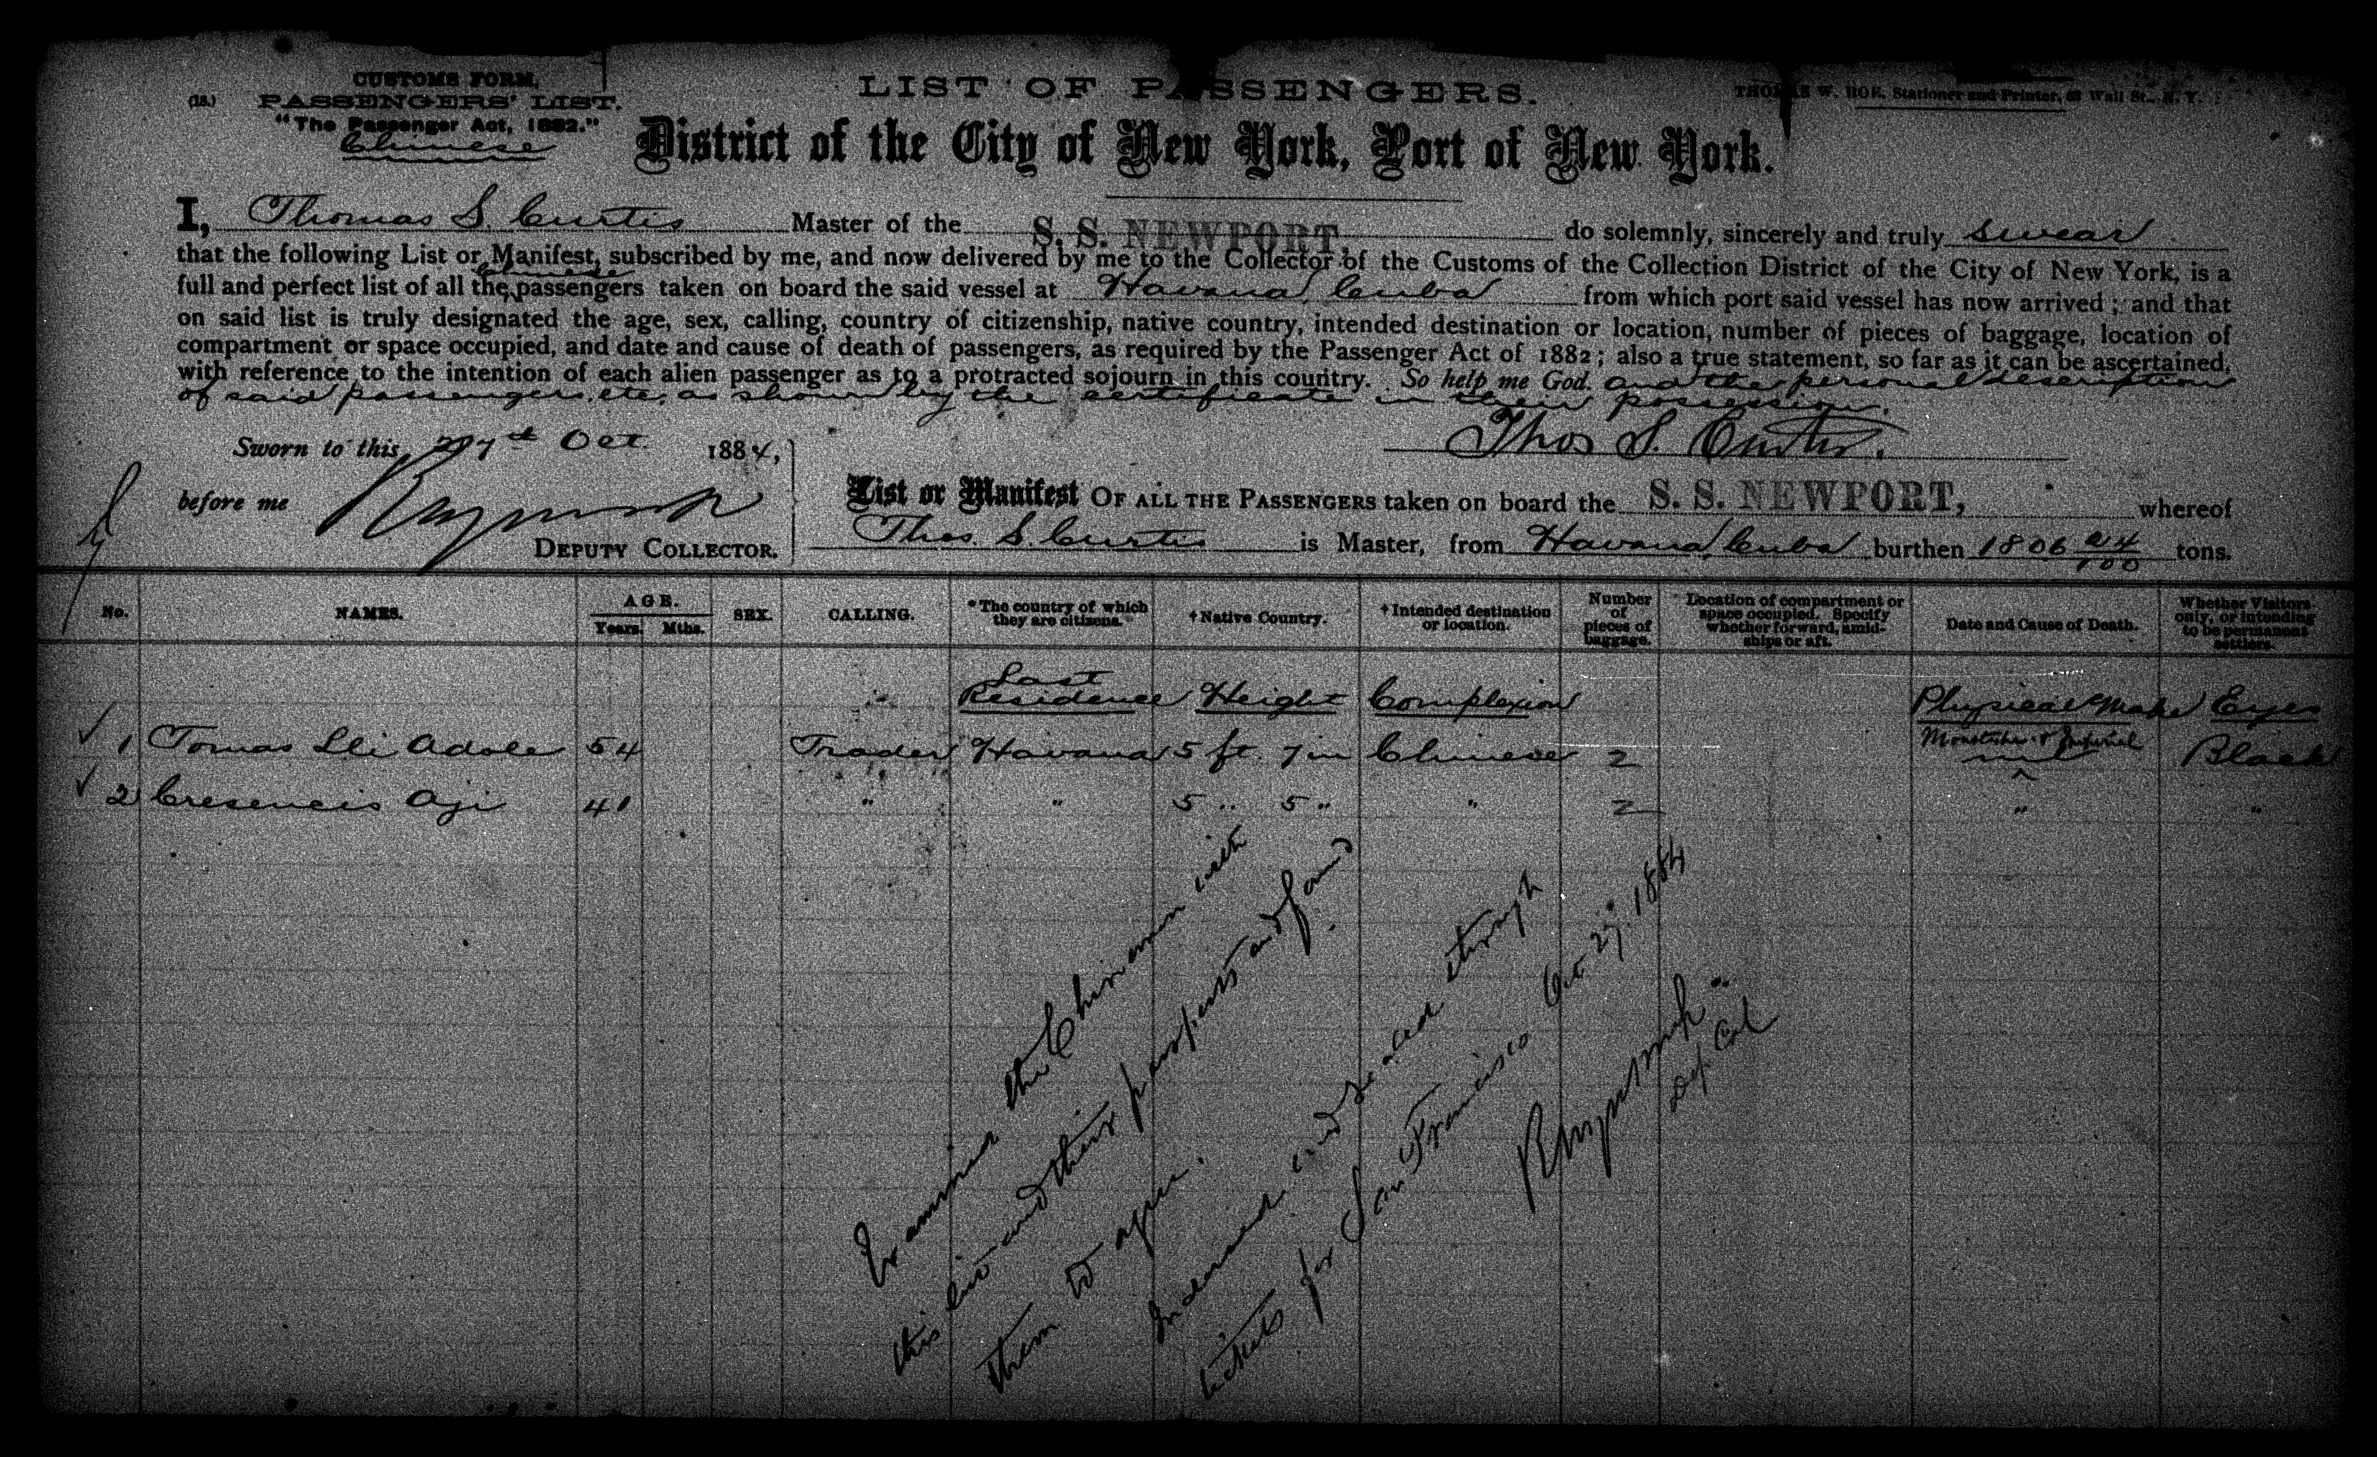 CUSTOMS FORM,
(18.) PASSENGERS' LIST.
"The Passenger Act, 1882."
Chinese
LIST OF PASSENGERS.
THOMAS W. HOE, Stationer and Printer, Wall St., N. Y.
District of the City of New York, Port of New York.
I, Thomas S. Curtis Master of the S. S. NEWPORT, do solemnly, sincerely and truly swear
that the following List or Manifest, subscribed by me, and now delivered by me to the Collector of the Customs of the Collection District of the City of New York, is a
full and perfect list of all the Chinese passengers taken on board the said vessel at Havana, Cuba from which port said vessel has now arrived; and that
on said list is truly designated the age, sex, calling, country of citizenship, native country, intended destination or location, number of pieces of baggage, location of
compartment or space occupied, and date and cause of death of passengers, as required by the Passenger Act of 1882; also a true statement, so far as it can be ascertained,
with reference to the intention of each alien passenger as to a protracted sojourn in this country. So help me God. and the personal description
of said passengers, etc, as shown by the certificate in their possession.
Thos S. Curtis.
Sworn to this 27th Oct. 1884,
before me
DEPUTY COLLECTOR.
List or Manifest OF ALL THE PASSENGERS taken on board the S. S. NEWPORT, whereof
Thos. S. Curtis is Master, from Havana, Cuba burthen 1806 24/100 tons.
No. NAMES. AGE. Years. Mths. SEX. CALLING. *The country of which they are citizens. †Native Country. †Intended destination or location. Number of pieces of baggage. Location of compartment or space occupied. Specify whether forward, amidships or aft. Date and Cause of Death. Whether Visitors only, or intending to be permanent settlers.
Last Residence Height Complexion Physical Make Eyes
1 Tomas Lli Adole 54 Trader Havana 5 ft. 7 in Chinese 2 Moustache & Imperial Black
2 Cresencis Aji 41 " " 5 " 5 " " 2 " "
Examined the Chinamen with
this list and their passports and found
them to agree.
Indorsed and sealed through
tickets for San Francisco Oct 27. 1884
Dep. Col